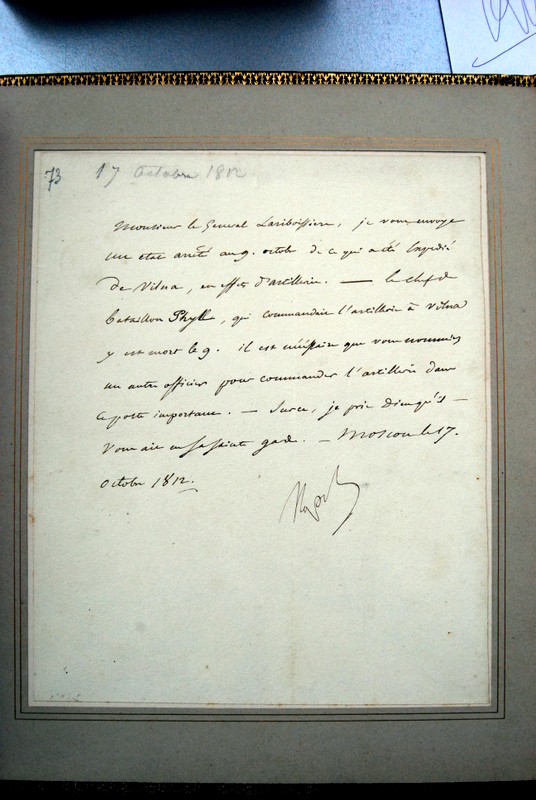 73
17 Octobre 1812
Monsieur le General Lariboissiere, je vous envoye
un etat arrêté au 9. octobre de ce qui a été expedié
de Vilna, en effets d'artillerie. — le chef de
bataillon Phyll, qui commandait l'artillerie à Vilna
y est mort le 9. il est nécessaire que vous nommiez
un autre officier pour commander l'artillerie dans
ce poste important. — Surce, je prie Dieu qu'il
vous ait en sa sainte garde. — Moscou le 17.
octobre 1812.
Nap